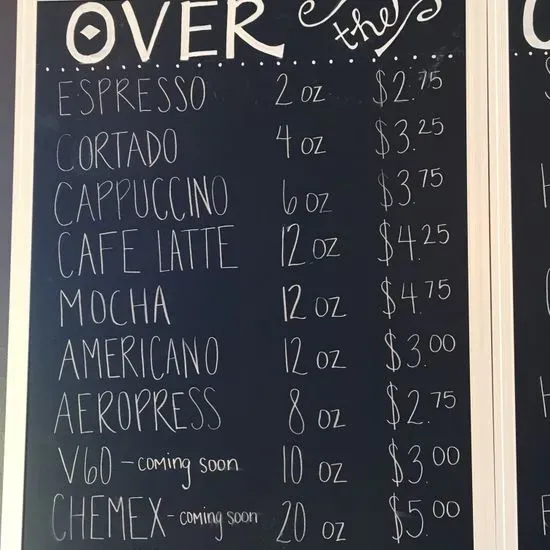 OVER the
ESPRESSO 2 oz $2.75
CORTADO 4 oz $3.25
CAPPUCCINO 6 oz $3.75
CAFE LATTE 12 oz $4.25
MOCHA 12 oz $4.75
AMERICANO 12 oz $3.00
AEROPRESS 8 oz $2.75
V60 - coming soon 10 oz $3.00
CHEMEX - coming soon 20 oz $5.00